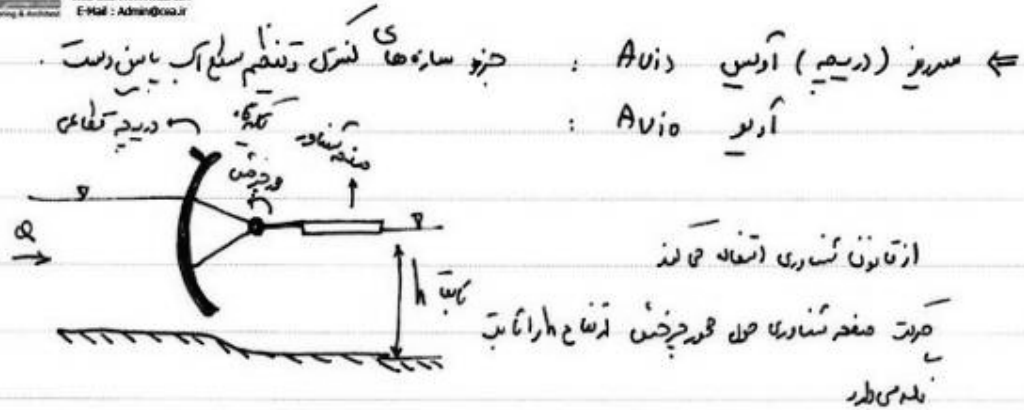 E-Mail : Admin@cea.ir
⇐ سرریز (دریچه) آویس Avis : جزو سازه های کنترل و تنظیم سطح آب پایین دست .
آویو Avio :
دریچه قطاعی
تکیه گاه
محور چرخش
صفحه شناور
Q
h ثابت
از قانون شناوری استفاده می کند
حرکت صفحه شناوری حول محور چرخش ارتفاع h را ثابت
نگه می دارد